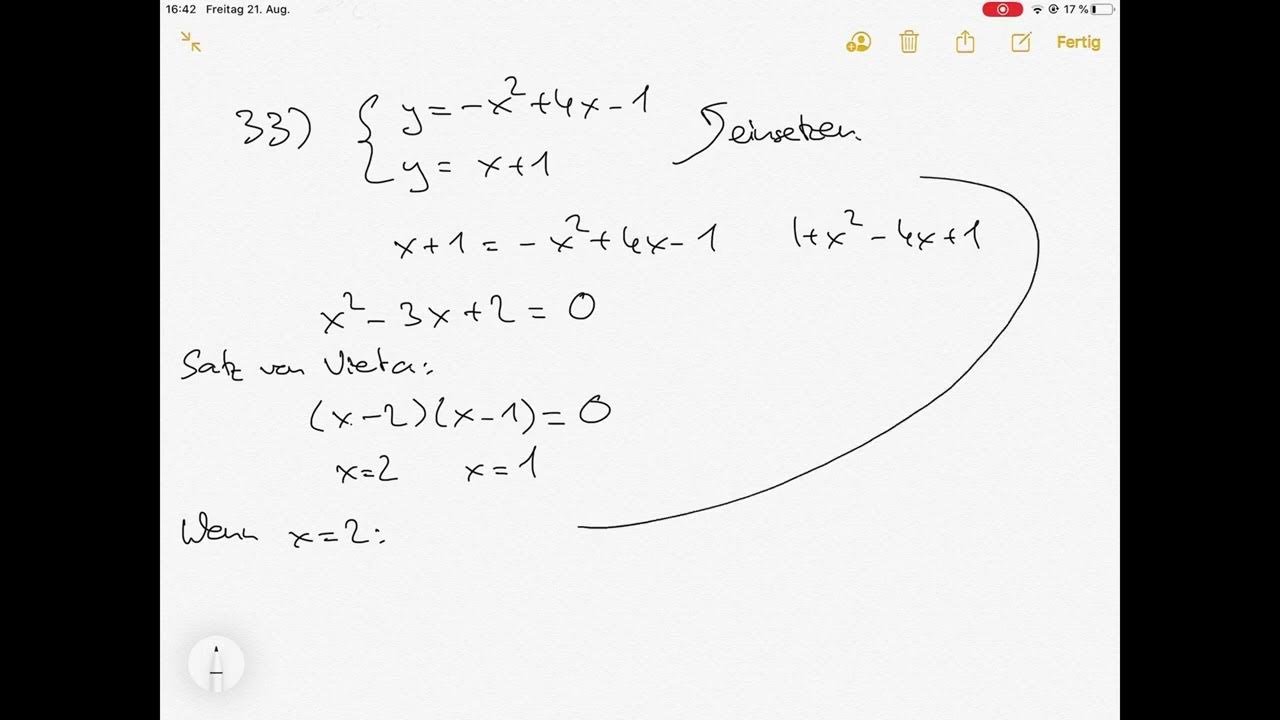 16:42 Freitag 21. Aug. 17 %
Fertig
33) { y = -x² + 4x - 1
y = x + 1 einsetzen.
x + 1 = -x² + 4x - 1 | + x² - 4x + 1
x² - 3x + 2 = 0
Satz von Vieta:
(x - 2)(x - 1) = 0
x = 2 x = 1
Wenn x = 2: